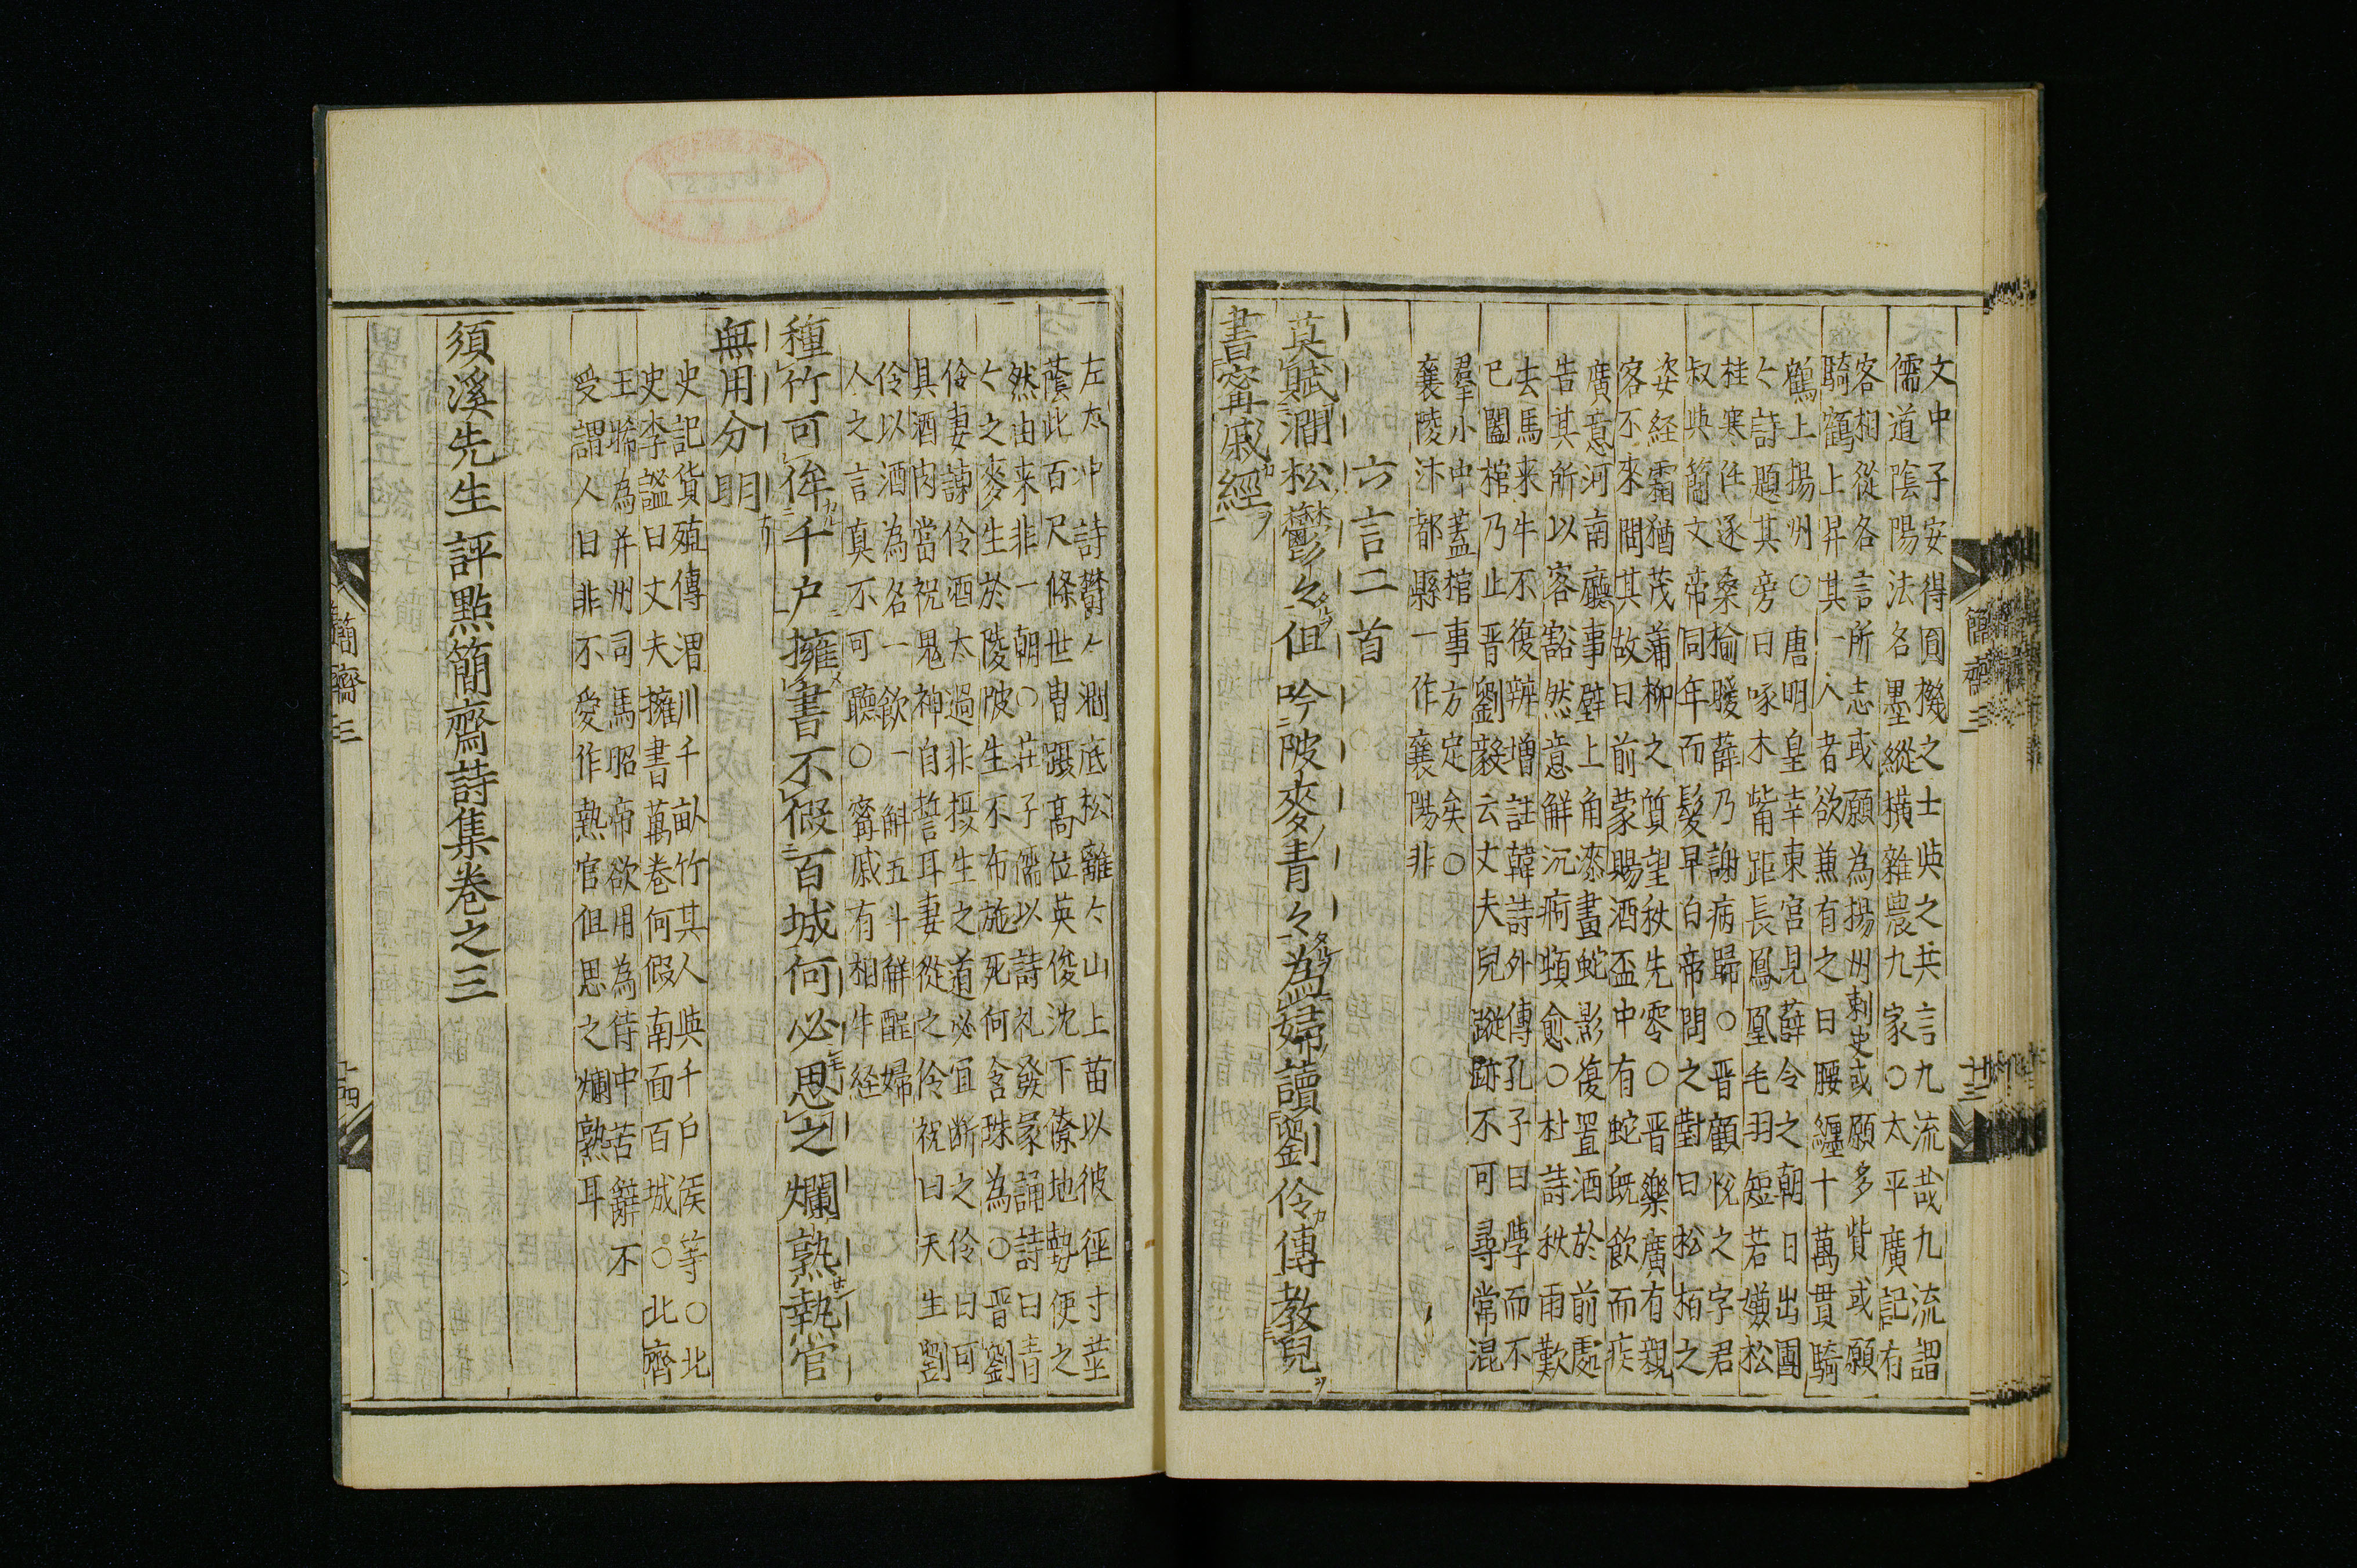 文中子安得圓機之士與之共言九流哉九流謂
儒道陰陽法名墨縱橫雜農九家○太平廣記有
客相從各言所志或願為揚州刺史或願多貲或願
騎鶴上昇其一人者欲兼有之曰腰纏十萬貫騎
鶴上揚州○唐明皇幸東宮見薛令之朝日出團
〻詩題其旁曰啄木觜距長鳳凰毛羽短若嫌松
桂寒任逐桑榆暖薛乃謝病歸○晋顧悅之字君
叔與簡文帝同年而髮早白帝問之對曰松栢之
姿経霜猶茂蒲柳之質望秋先零○晋樂廣有親
客不來問其故曰前蒙賜酒盃中有蛇既飲而疾
廣意河南廳事壁上角漆畫蛇影復置酒於前處
告其所以客豁然意解沉痾頓愈○杜詩秋雨歎
去馬来牛不復辨増註韓詩外傳孔子曰學而不
已闔棺乃止晋劉毅云丈夫兒蹤跡不可尋常混
羣小中蓋棺事方定矣○
襄陵沣都縣一作襄陽非
六言二首
莫賦澗松鬱〻但吟陂麥青〻為婦讀劉伶傳教兒
書甯戚經
左太冲詩鬱〻澗底松離〻山上苗以彼徑寸莖
蔭此百尺條世冑躡高位英俊沈下僚地勢使之
然由来非一朝○莊子儒以詩礼發冢誦詩曰青
〻之麥生於陵陂生不布施死何含珠為○晋劉
伶妻諫伶酒太過非摂生之道必宜断之伶曰可
具酒肉當祝鬼神自誓耳妻從之伶祝曰天生劉
伶以酒為名一飲一斛五斗解酲婦
人之言真不可聽○甯戚有相牛経
種竹可侔千户擁書不假百城何必思之爛熟熱官
無用分明
史記貨殖傳渭川千畝竹其人與千户侯等○北
史李謐曰丈夫擁書萬巻何假南面百城○北齊
王晞為并州司馬昭帝欲用為侍中苦辭不
受謂人曰非不愛作熱官但思之爛熟耳
須溪先生評點簡齋詩集卷之三
簡齋三
簡齋三